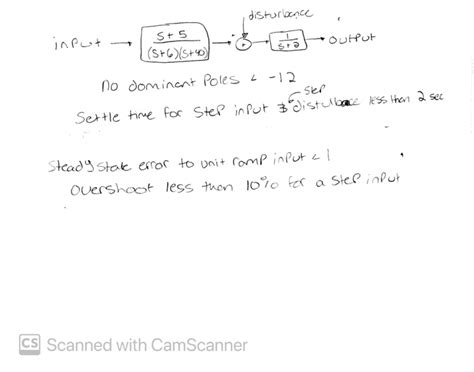 disturbance
input → s+5 / (s+6)(s+40) → → 1 / s+2 → output
No dominant Poles < -12
Step
Settle time for Step input & disturbance less than 2 sec
Steady state error to unit ramp input < 1
Overshoot less than 10% for a step input
CS Scanned with CamScanner